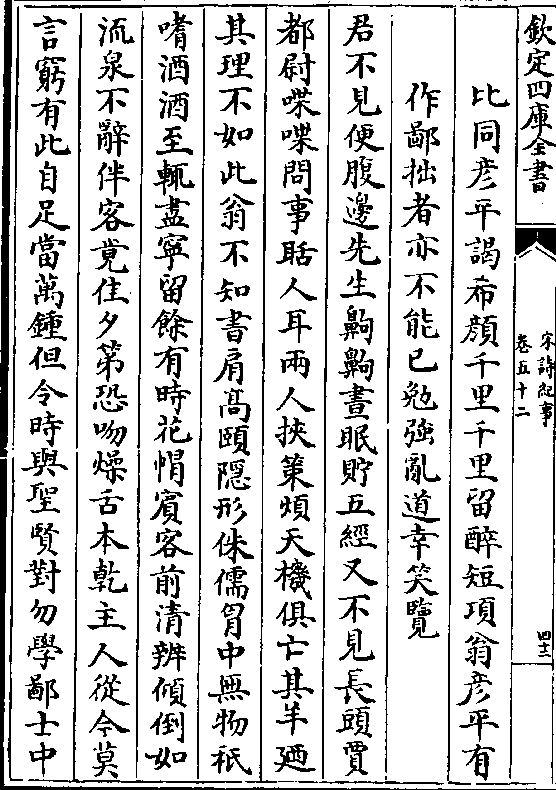 欽定四庫全書
宋詩紀事
卷五十二
四十三
比同彦平謁希顔千里千里留醉短項翁彦平有
作鄙拙者亦不能已勉強亂道幸笑覽
君不見便腹邊先生齁齁晝眠貯五經又不見長頭賈
都尉喋喋問事聒人耳兩人挾䇿煩天機俱亡其羊廼
其理不如此翁不知書肩髙頤隠形侏儒胷中無物秖
嗜酒酒至輒盡寧留餘有時花帽賓客前清辨傾倒如
流泉不辭伴客竟佳夕第恐吻燥舌本乾主人從今莫
言窮有此自足當萬鍾但令時與聖賢對勿學鄙士中